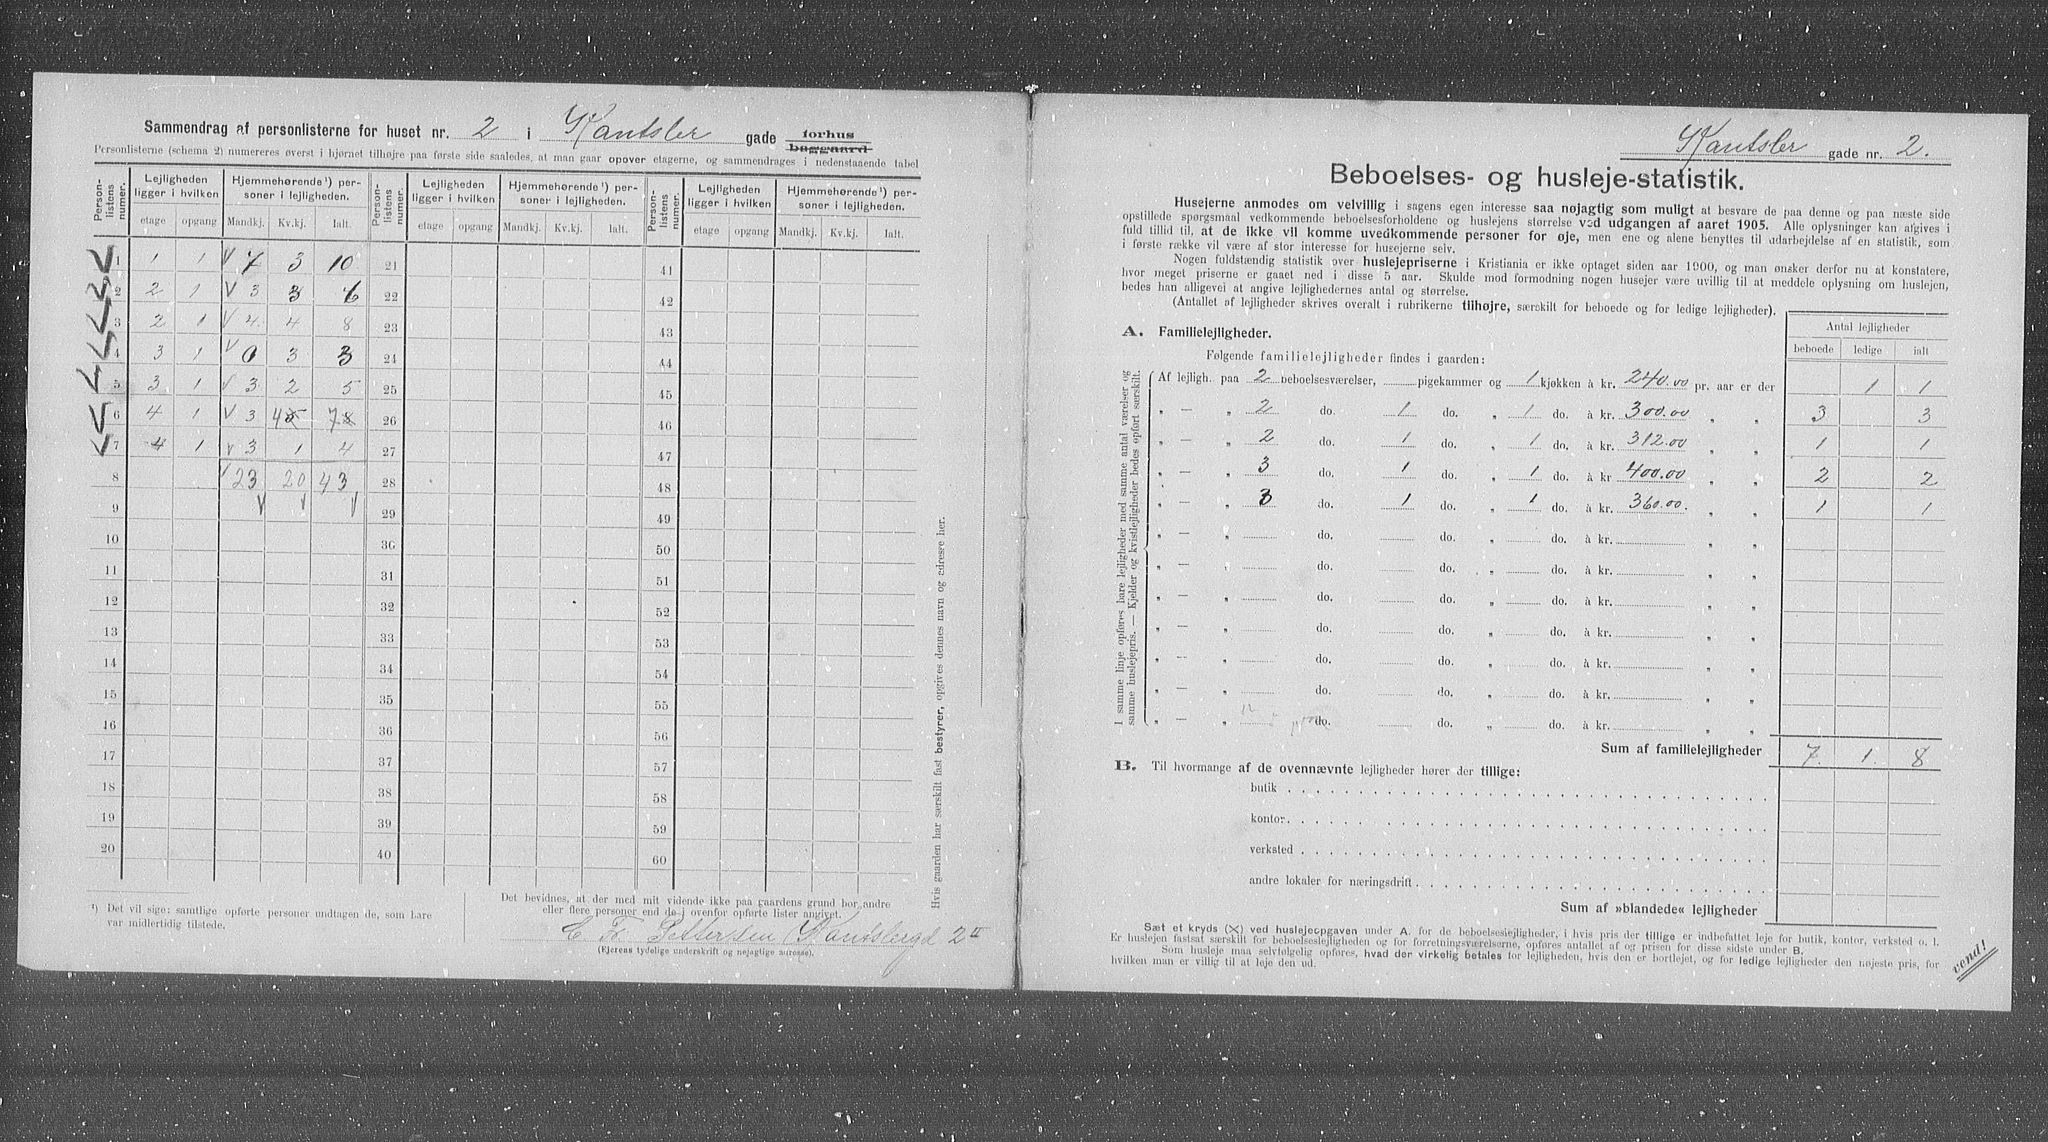 Sammendrag af personlisterne for huset nr. 2 i Kantsler gade forhus baggaard
Personlisterne (schema 2) numereres øverst i hjørnet tilhøjre paa første side saaledes, at man gaar opover etagerne, og sammendrages i nedenstaaende tabel
Person-listens numer. Lejligheden ligger i hvilken etage opgang Hjemmehørende¹) personer i lejligheden. Mandkj. Kv.kj. Ialt.
Person-listens numer. Lejligheden ligger i hvilken etage opgang Hjemmehørende¹) personer i lejligheden. Mandkj. Kv.kj. Ialt.
Person-listens numer. Lejligheden ligger i hvilken etage opgang Hjemmehørende¹) personer i lejligheden. Mandkj. Kv.kj. Ialt.
1 1 1 7 3 10 21 41
2 2 1 3 3 6 22 42
3 2 1 4 4 8 23 43
4 3 1 0 3 3 24 44
5 3 1 3 2 5 25 45
6 4 1 3 4 7 26 46
7 4 1 3 1 4 27 47
8 23 20 43 28 48
9 29 49
10 30 50
11 31 51
12 32 52
13 33 53
14 34 54
15 35 55
16 36 56
17 37 57
18 38 58
19 39 59
20 40 60
¹) Det vil sige: samtlige opførte personer undtagen de, som bare
var midlertidig tilstede.
Det bevidnes, at der med mit vidende ikke paa gaardens grund bor andre
eller flere personer end de i ovenfor opførte lister angivet.
C Fr. Pettersen Kantslergd 2 II
(Ejerens tydelige underskrift og nøjagtige adresse).
Hvis gaarden har særskilt fast bestyrer, opgives dennes navn og adresse her.
Kantsler gade nr. 2.
Beboelses- og husleje-statistik.
Husejerne anmodes om velvillig i sagens egen interesse saa nøjagtig som muligt at besvare de paa denne og paa næste side
opstillede spørgsmaal vedkommende beboelsesforholdene og huslejens størrelse ved udgangen af aaret 1905. Alle oplysninger kan afgives i
fuld tillid til, at de ikke vil komme uvedkommende personer for øje, men ene og alene benyttes til udarbejdelse af en statistik, som
i første række vil være af stor interesse for husejerne selv.
Nogen fuldstændig statistik over huslejepriserne i Kristiania er ikke optaget siden aar 1900, og man ønsker derfor nu at konstatere,
hvor meget priserne er gaaet ned i disse 5 aar. Skulde mod formodning nogen husejer være uvillig til at meddele oplysning om huslejen,
bedes han alligevel at angive lejlighedernes antal og størrelse.
(Antallet af lejligheder skrives overalt i rubrikerne tilhøjre, særskilt for beboede og for ledige lejligheder).
A. Familielejligheder.
Antal lejligheder
beboede ledige ialt
Følgende familielejligheder findes i gaarden:
I samme linje opføres bare lejligheder med samme antal værelser og
samme huslejepris. — Kjelder og kvistlejligheder bedes opført særskilt.
Af lejligh. paa 2 beboelsesværelser, pigekammer og 1 kjøkken à kr. 240.00 pr. aar er der 1 1
" — " 2 do. 1 do. " 1 do. à kr. 300.00 " " 3 3
" — " 2 do. 1 do. " 1 do. à kr. 312.00 " " 1 1
" — " 3 do. 1 do. " 1 do. à kr 400.00 " " 2 2
" — " 3 do. 1 do. " 1 do. à kr. 360.00. " " 1 1
" — " do. do. " do. à kr. " "
" — " do. do. " do. à kr. " "
" — " do. do. " do. à kr. " "
" — " do. do. " do. à kr. " "
" — " do. do. " do. à kr. " "
" — " do. do. " do. à kr. " "
" — " do. do. " do. à kr. " "
Sum af familielejligheder 7 1 8
B. Til hvormange af de ovennævnte lejligheder hører der tillige:
butik
kontor
verksted
andre lokaler for næringsdrift
Sum af »blandede« lejligheder
Sæt et kryds (X) ved huslejeopgaven under A. for de beboelseslejligheder, i hvis pris der tillige er indbefattet leje for butik, kontor, verksted o. l.
Er huslejen fastsat særskilt for beboelseslejligheden og for forretningsværelserne, opføres antallet af og prisen for disse sidste under B.
Som husleje maa selvfølgelig opføres, hvad der virkelig betales for lejligheden, hvis den er bortlejet, og for ledige lejligheder den nøjeste pris, for
hvilken man er villig til at leje den ud.
vend!